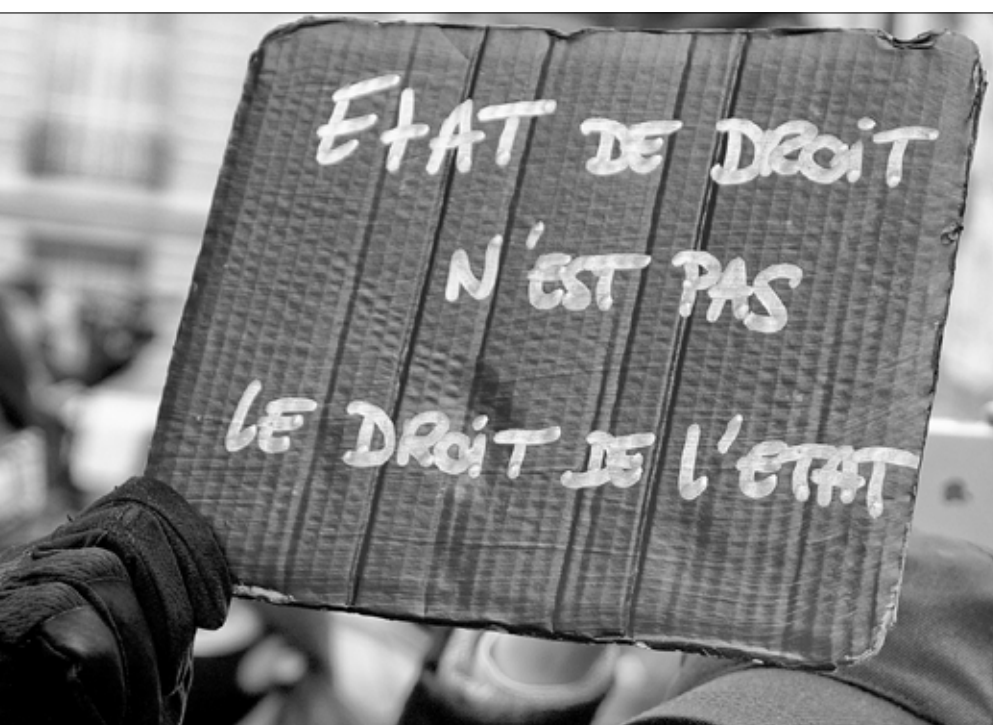 EtAT DE DROiT
N'EST PAS
LE DROiT DE L'ETAT